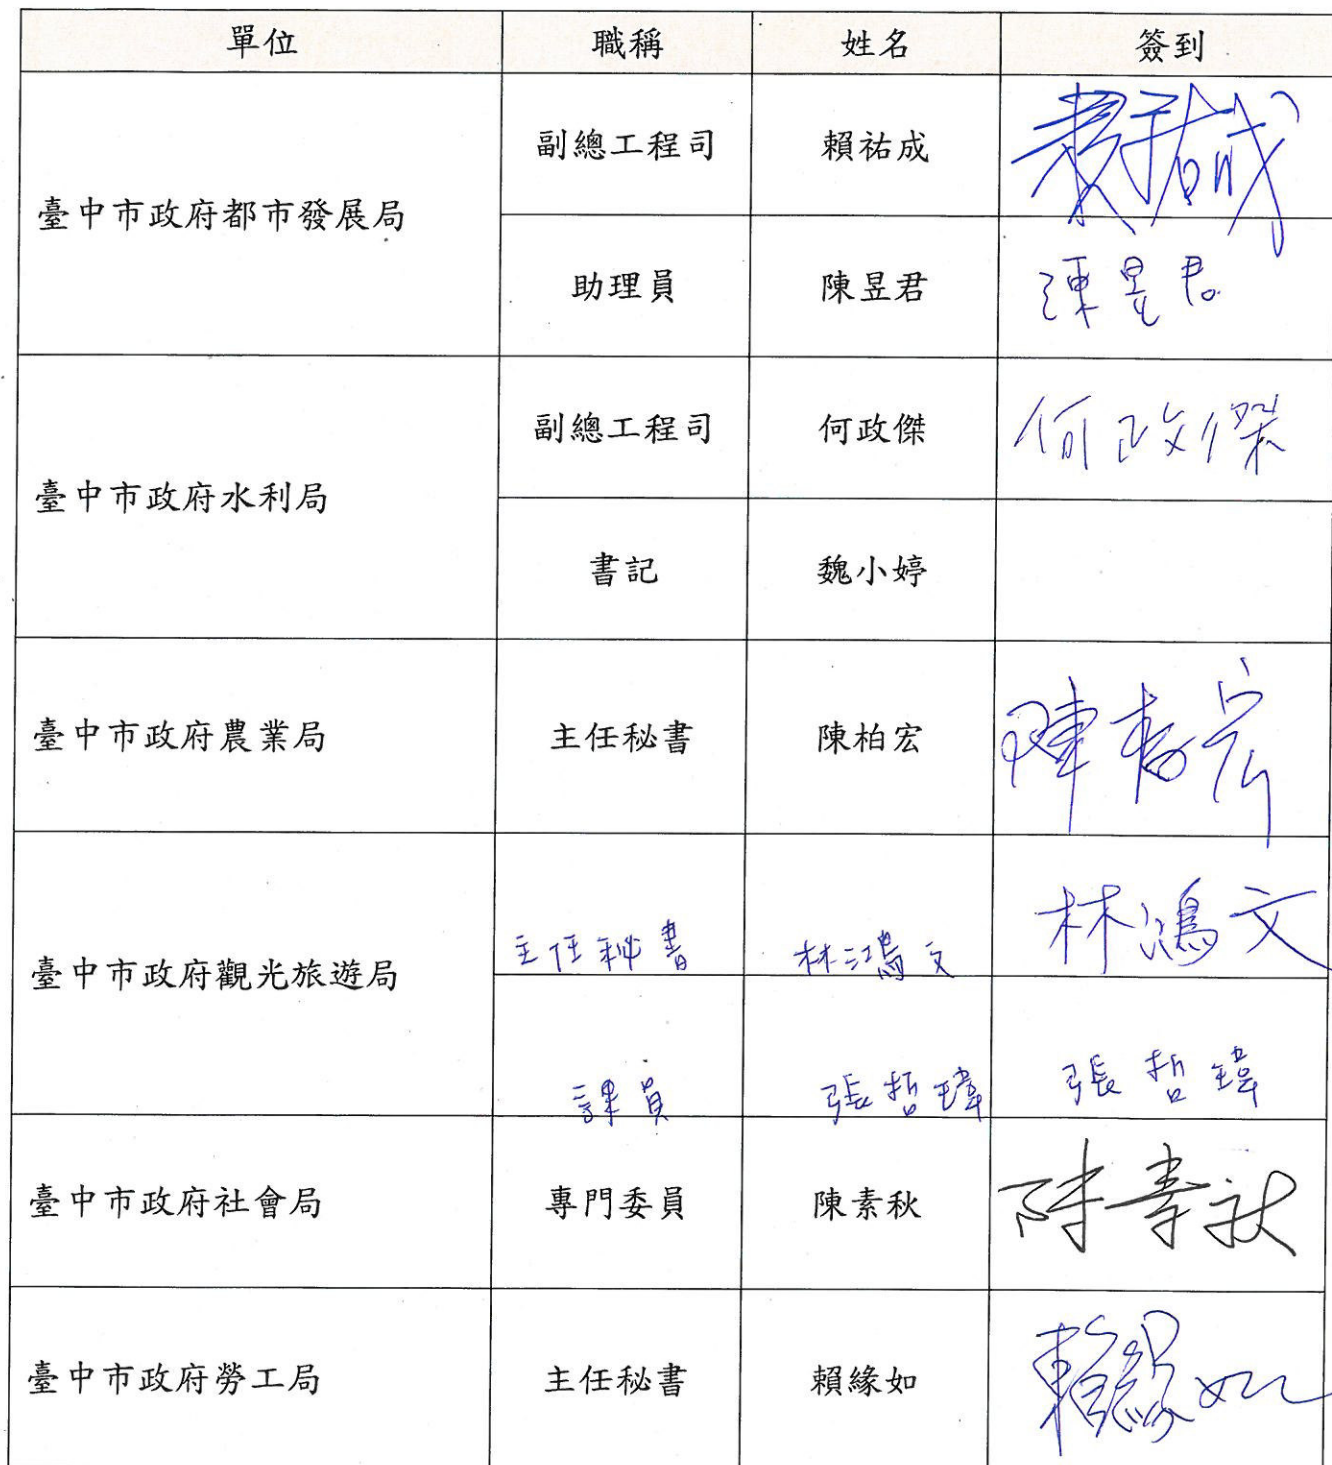 單位 職稱 姓名 簽到
臺中市政府都市發展局
副總工程司 賴祐成 賴祐成
助理員 陳昱君 陳昱君
臺中市政府水利局
副總工程司 何政傑 何政傑
書記 魏小婷
臺中市政府農業局 主任秘書 陳柏宏 陳柏宏
臺中市政府觀光旅遊局
主任秘書 林鴻文 林鴻文
課員 張哲瑋 張哲瑋
臺中市政府社會局 專門委員 陳素秋 陳素秋
臺中市政府勞工局 主任秘書 賴緣如 賴緣如